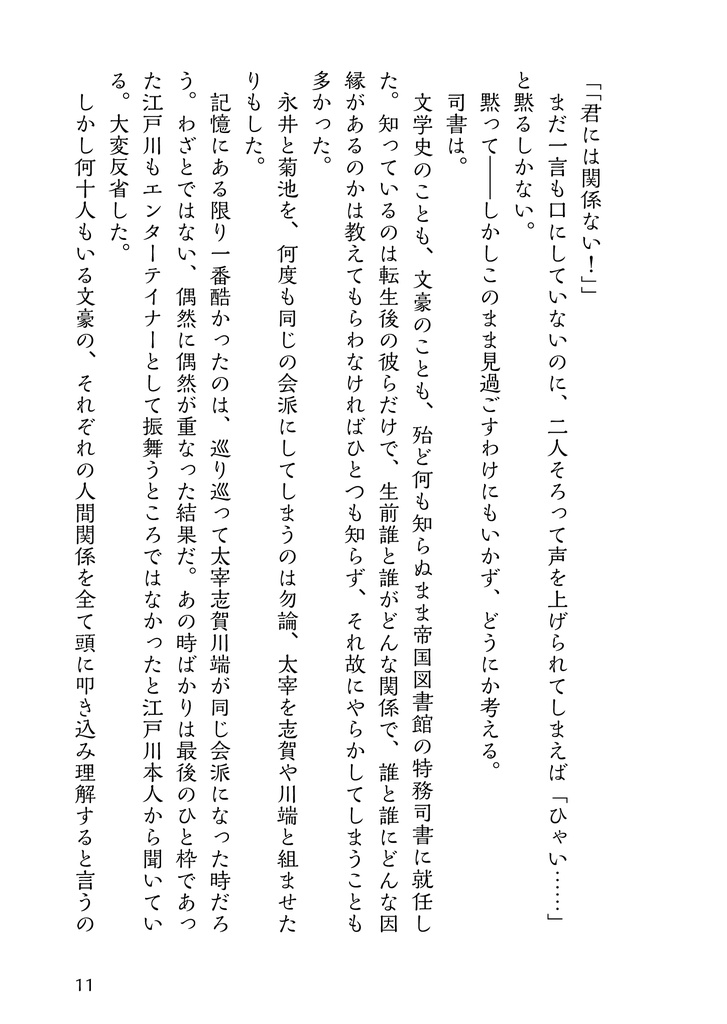 「「君には関係ない！」」
　まだ一言も口にしていないのに、二人そろって声を上げられてしまえば「ひゃい……」
と黙るしかない。
　黙って――しかしこのまま見過ごすわけにもいかず、どうにか考える。
　司書は。
　文学史のことも、文豪のことも、殆ど何も知らぬまま帝国図書館の特務司書に就任し
た。知っているのは転生後の彼らだけで、生前誰と誰がどんな関係で、誰と誰にどんな因
縁があるのかは教えてもらわなければひとつも知らず、それ故にやらかしてしまうことも
多かった。
　永井と菊池を、何度も同じの会派にしてしまうのは勿論、太宰を志賀や川端と組ませた
りもした。
　記憶にある限り一番酷かったのは、巡り巡って太宰志賀川端が同じ会派になった時だろ
う。わざとではない、偶然に偶然が重なった結果だ。あの時ばかりは最後のひと枠であっ
た江戸川もエンターテイナーとして振舞うところではなかったと江戸川本人から聞いてい
る。大変反省した。
　しかし何十人もいる文豪の、それぞれの人間関係を全て頭に叩き込み理解すると言うの
11